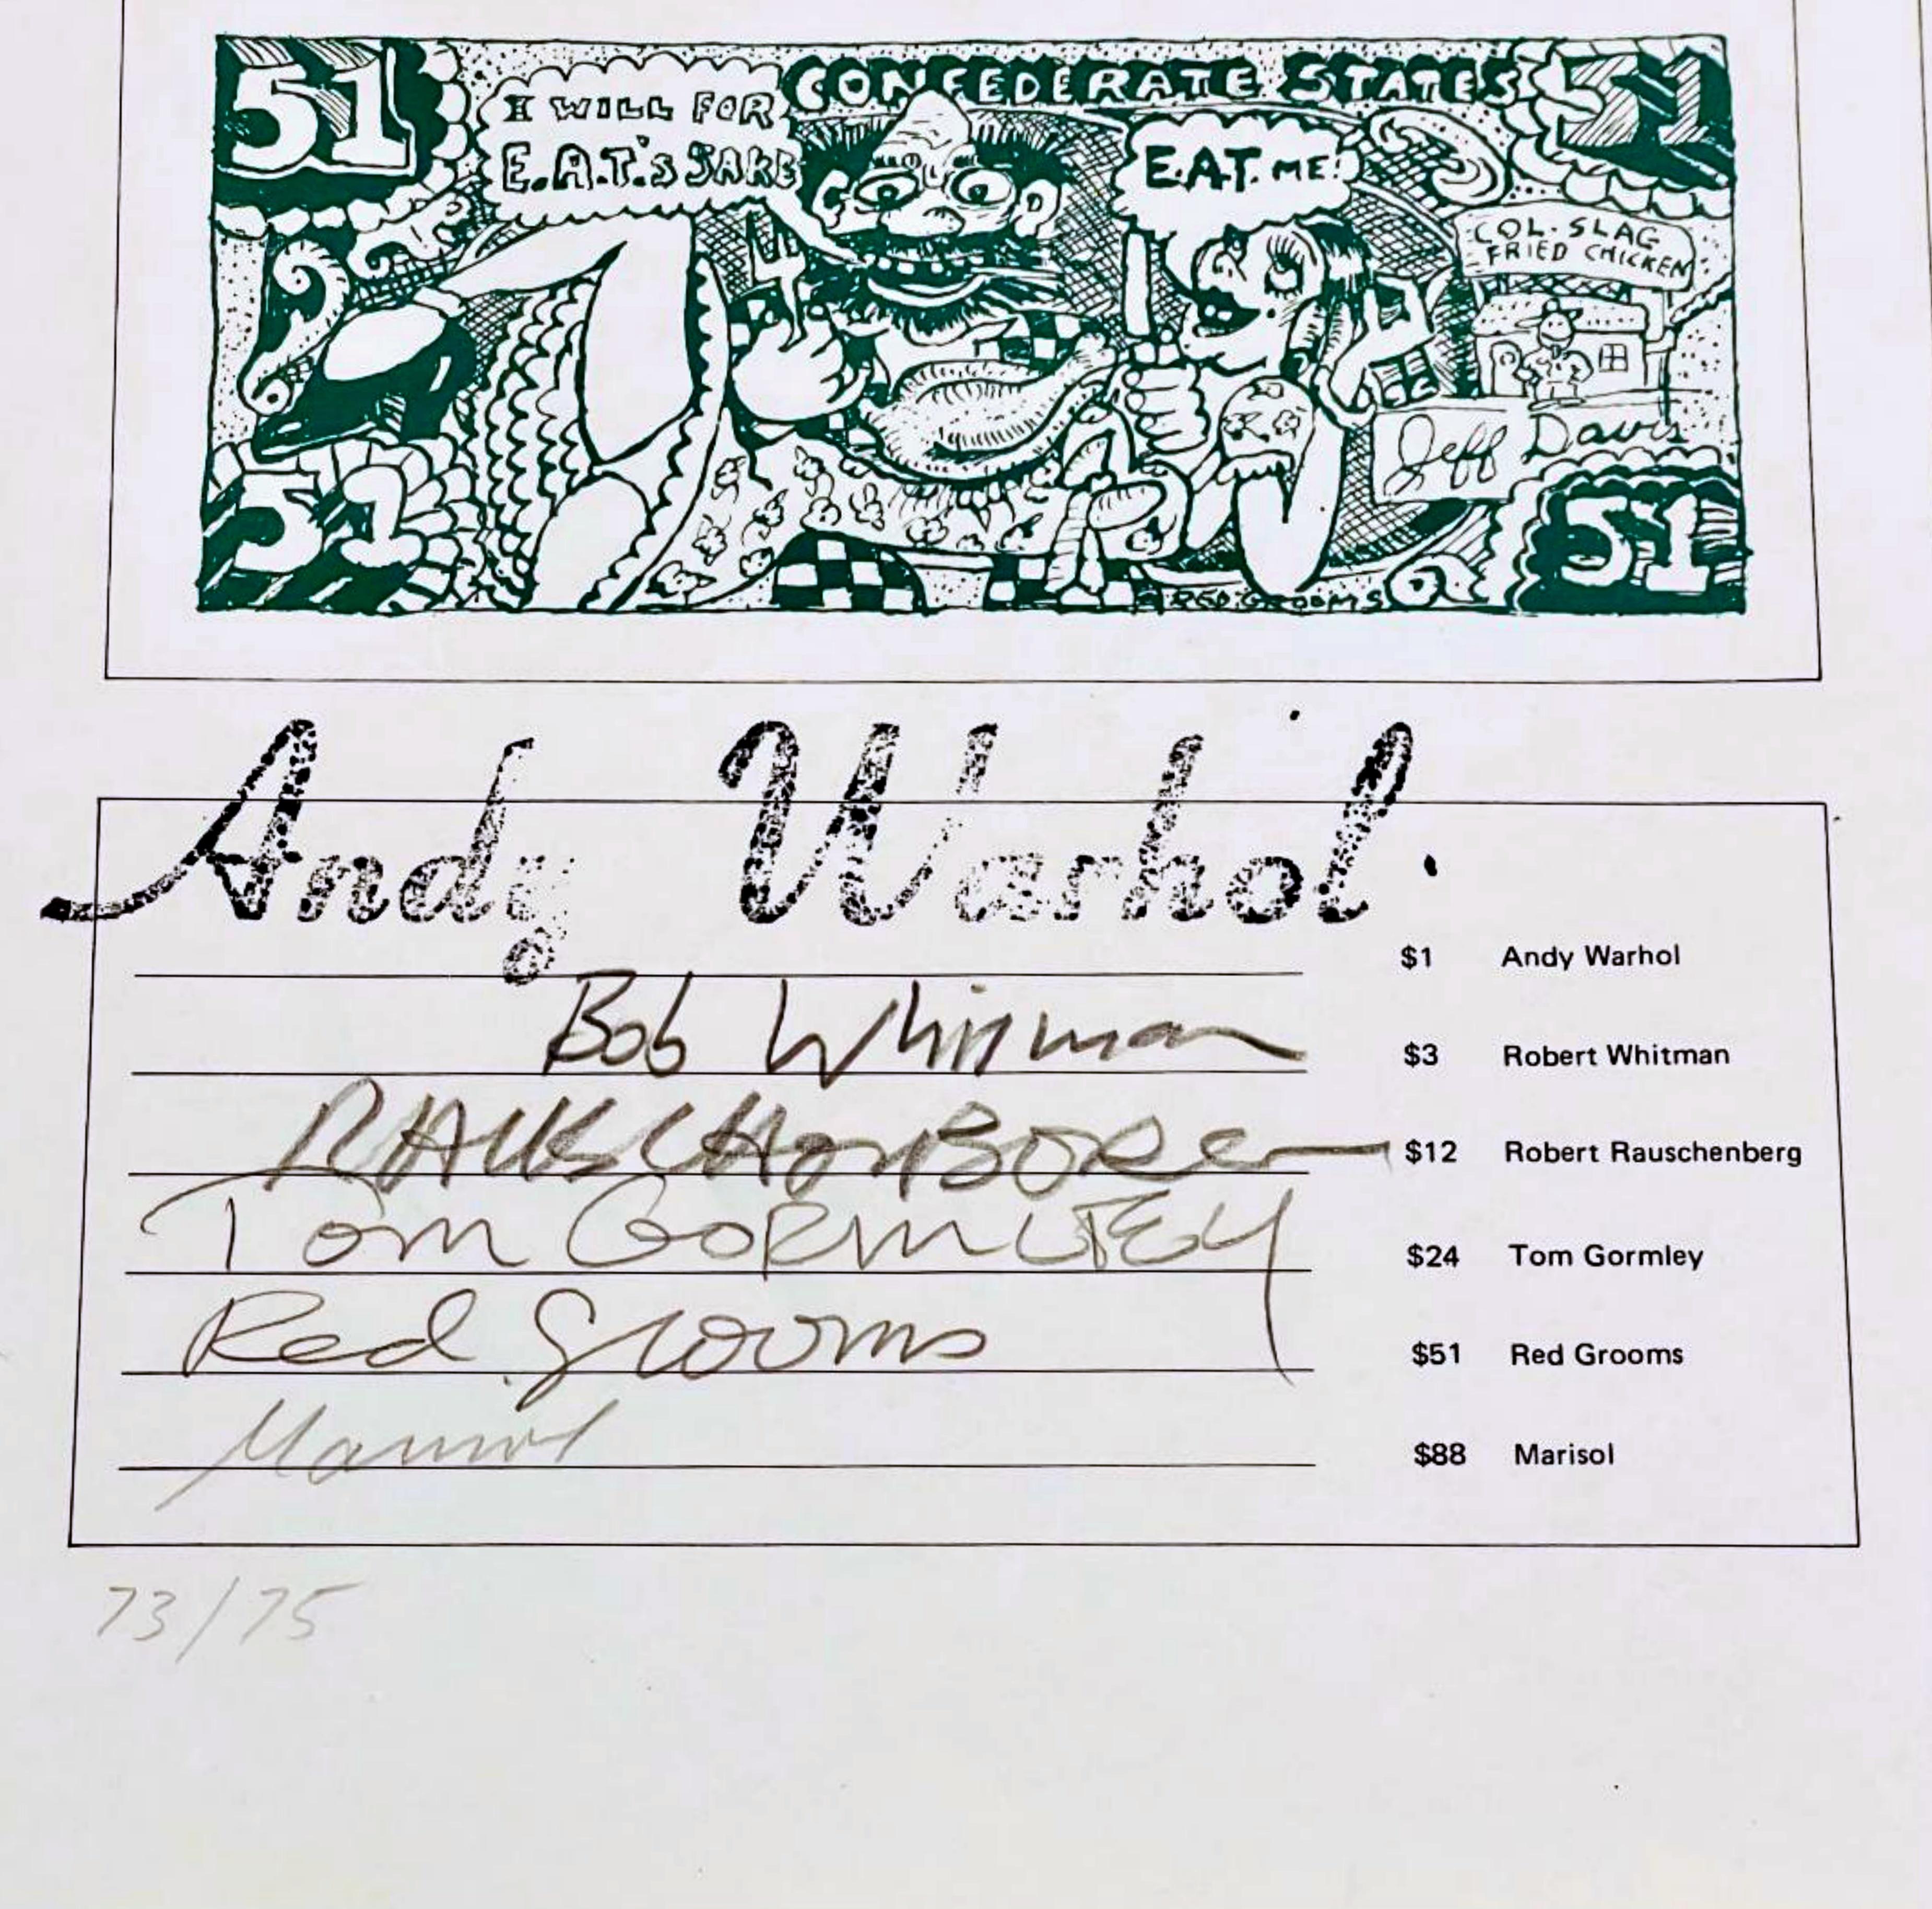 51 CONFEDERATE STATES 51
I WILL FOR
E.A.T.'S SAKE
E.A.T. ME!
COL. SLAG
FRIED CHICKEN
Jeff Davis
51 51
RED GROOMS
Andy Warhol
$1 Andy Warhol
Bob Whitman $3 Robert Whitman
RAUSCHENBERG $12 Robert Rauschenberg
Tom GORMLEY $24 Tom Gormley
Red Grooms $51 Red Grooms
Marisol $88 Marisol
73/75